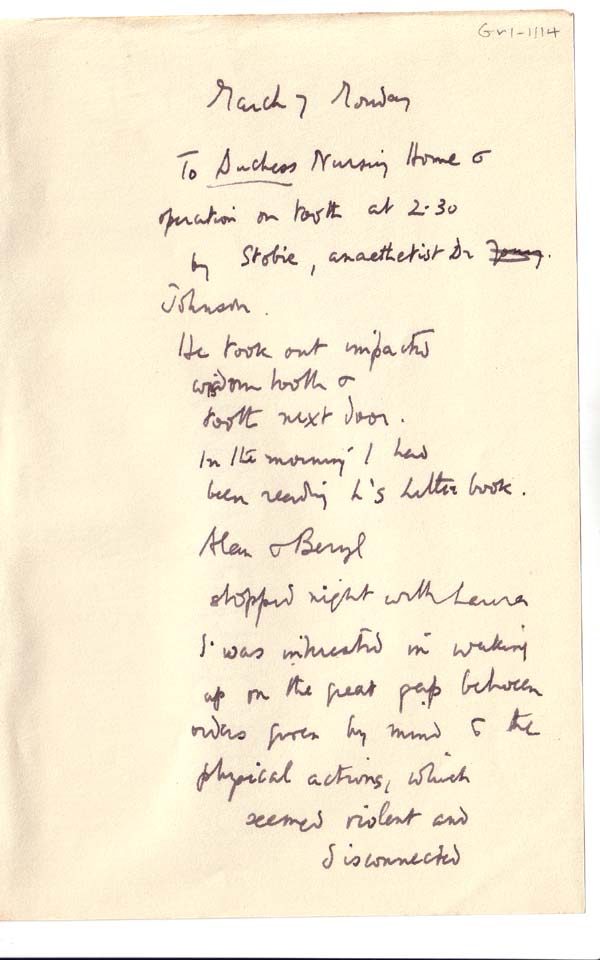 Gr1-1/14
March 7 Monday
To Duchess Nursing Home &
operation on tooth at 2.30
by Stobie, anaethetist Dr
Johnson.
He took out impacted
wisdom tooth &
tooth next door.
In the morning I had
been reading L's letter book.
Alan & Beryl
stopped night with Laura
I was interested in waking
up on the great gap between
orders given by mind & the
physical actions, which
seemed violent and
disconnected